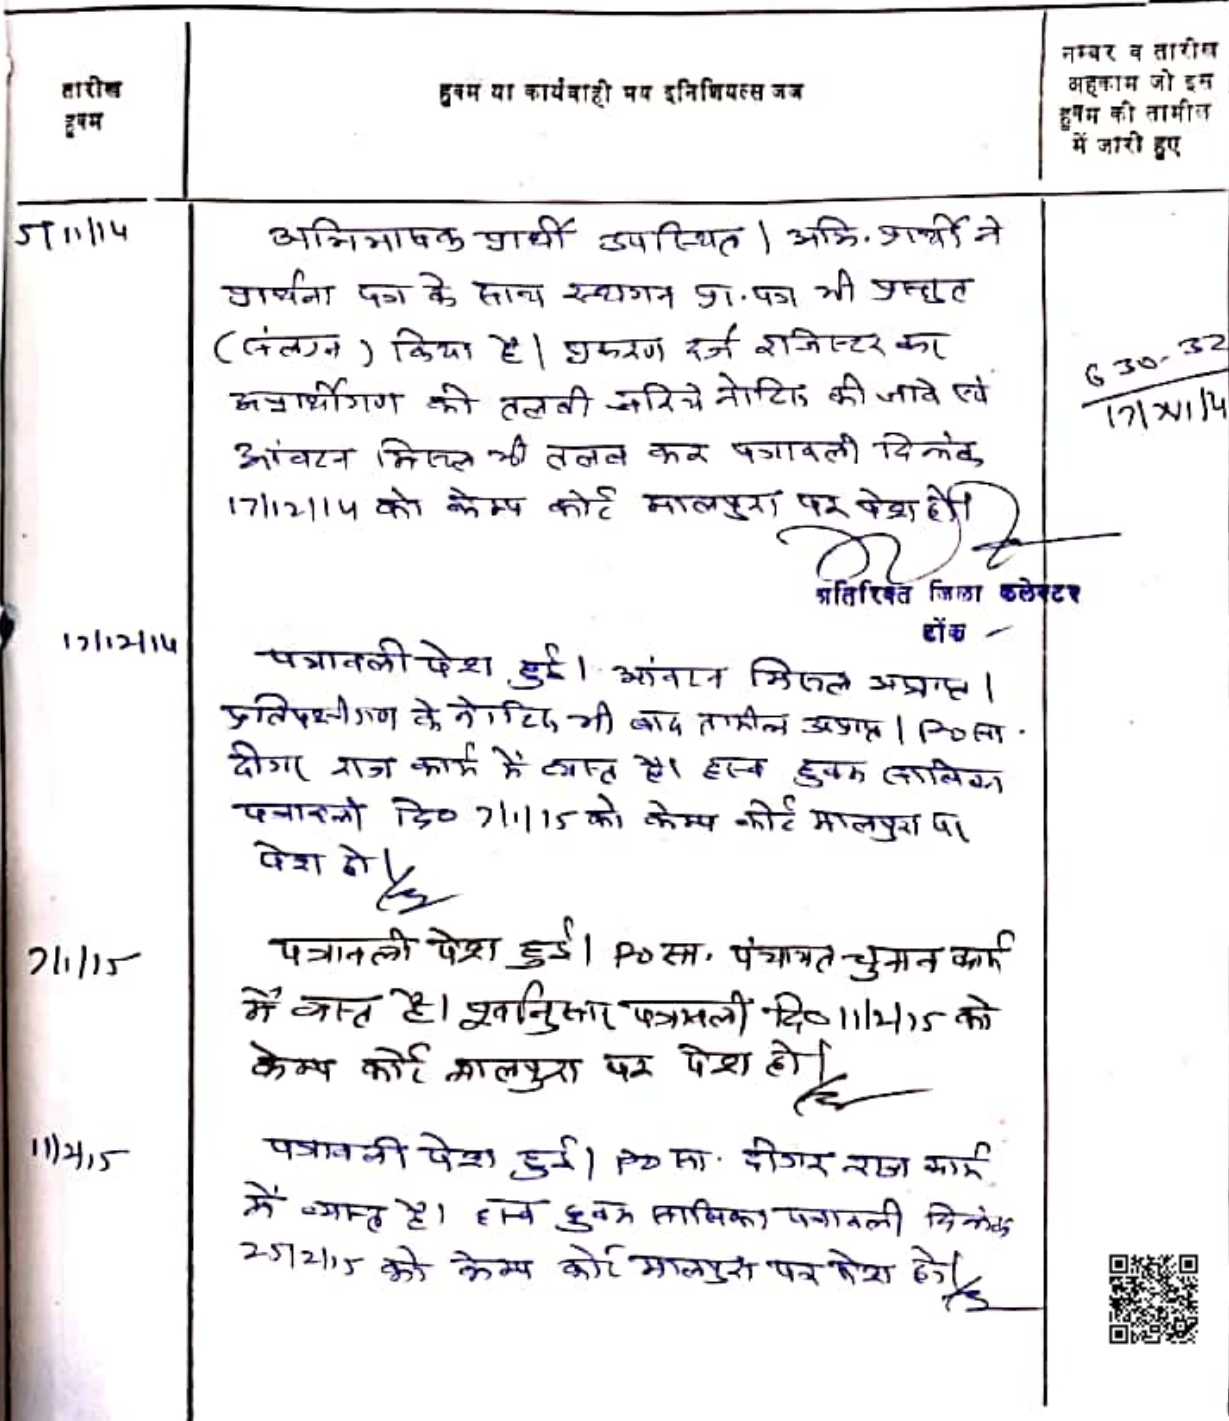 तारीख
हुक्म
हुक्म या कार्यवाही मय इनिशियल्स जज
नम्बर व तारीख
अहकाम जो इस
हुक्म की तामील
में जारी हुए
5/11/14
अभिभाषक प्रार्थी उपस्थित। अभि. प्रार्थी ने
प्रार्थना पत्र के साथ स्थगन प्रा.पत्र भी प्रस्तुत
(संलग्न) किया है। प्रकरण दर्ज रजिस्टर कर
अप्रार्थीगण की तलबी जरिये नोटिस की जावे एवं
आंवटन मिसल भी तलब कर पत्रावली दिनांक
17/12/14 को केम्प कोर्ट मालपुरा पर पेश हो।
630-32
17/XI/14
अतिरिक्त जिला कलेक्टर
टोंक
17/12/14
पत्रावली पेश हुई। आंवटन मिसल अप्राप्त।
प्रतिपक्षीगण के नोटिस भी बाद तामील अप्राप्त। PO सा.
दीगर राज कार्य में व्यस्त है। हस्ब हुक्म साबिका
पत्रावली दि० 7/1/15 को केम्प कोर्ट मालपुरा पर
पेश हो।
7/1/15
पत्रावली पेश हुई। PO सा. पंचायत चुनाव कार्य
में व्यस्त है। पूर्वानुसार पत्रावली दि० 11/2/15 को
केम्प कोर्ट मालपुरा पर पेश हो।
11/2/15
पत्रावली पेश हुई। PO सा. दीगर राज कार्य
में व्यस्त है। हस्ब हुक्म साबिका पत्रावली दिनांक
25/2/15 को केम्प कोर्ट मालपुरा पर पेश हो।